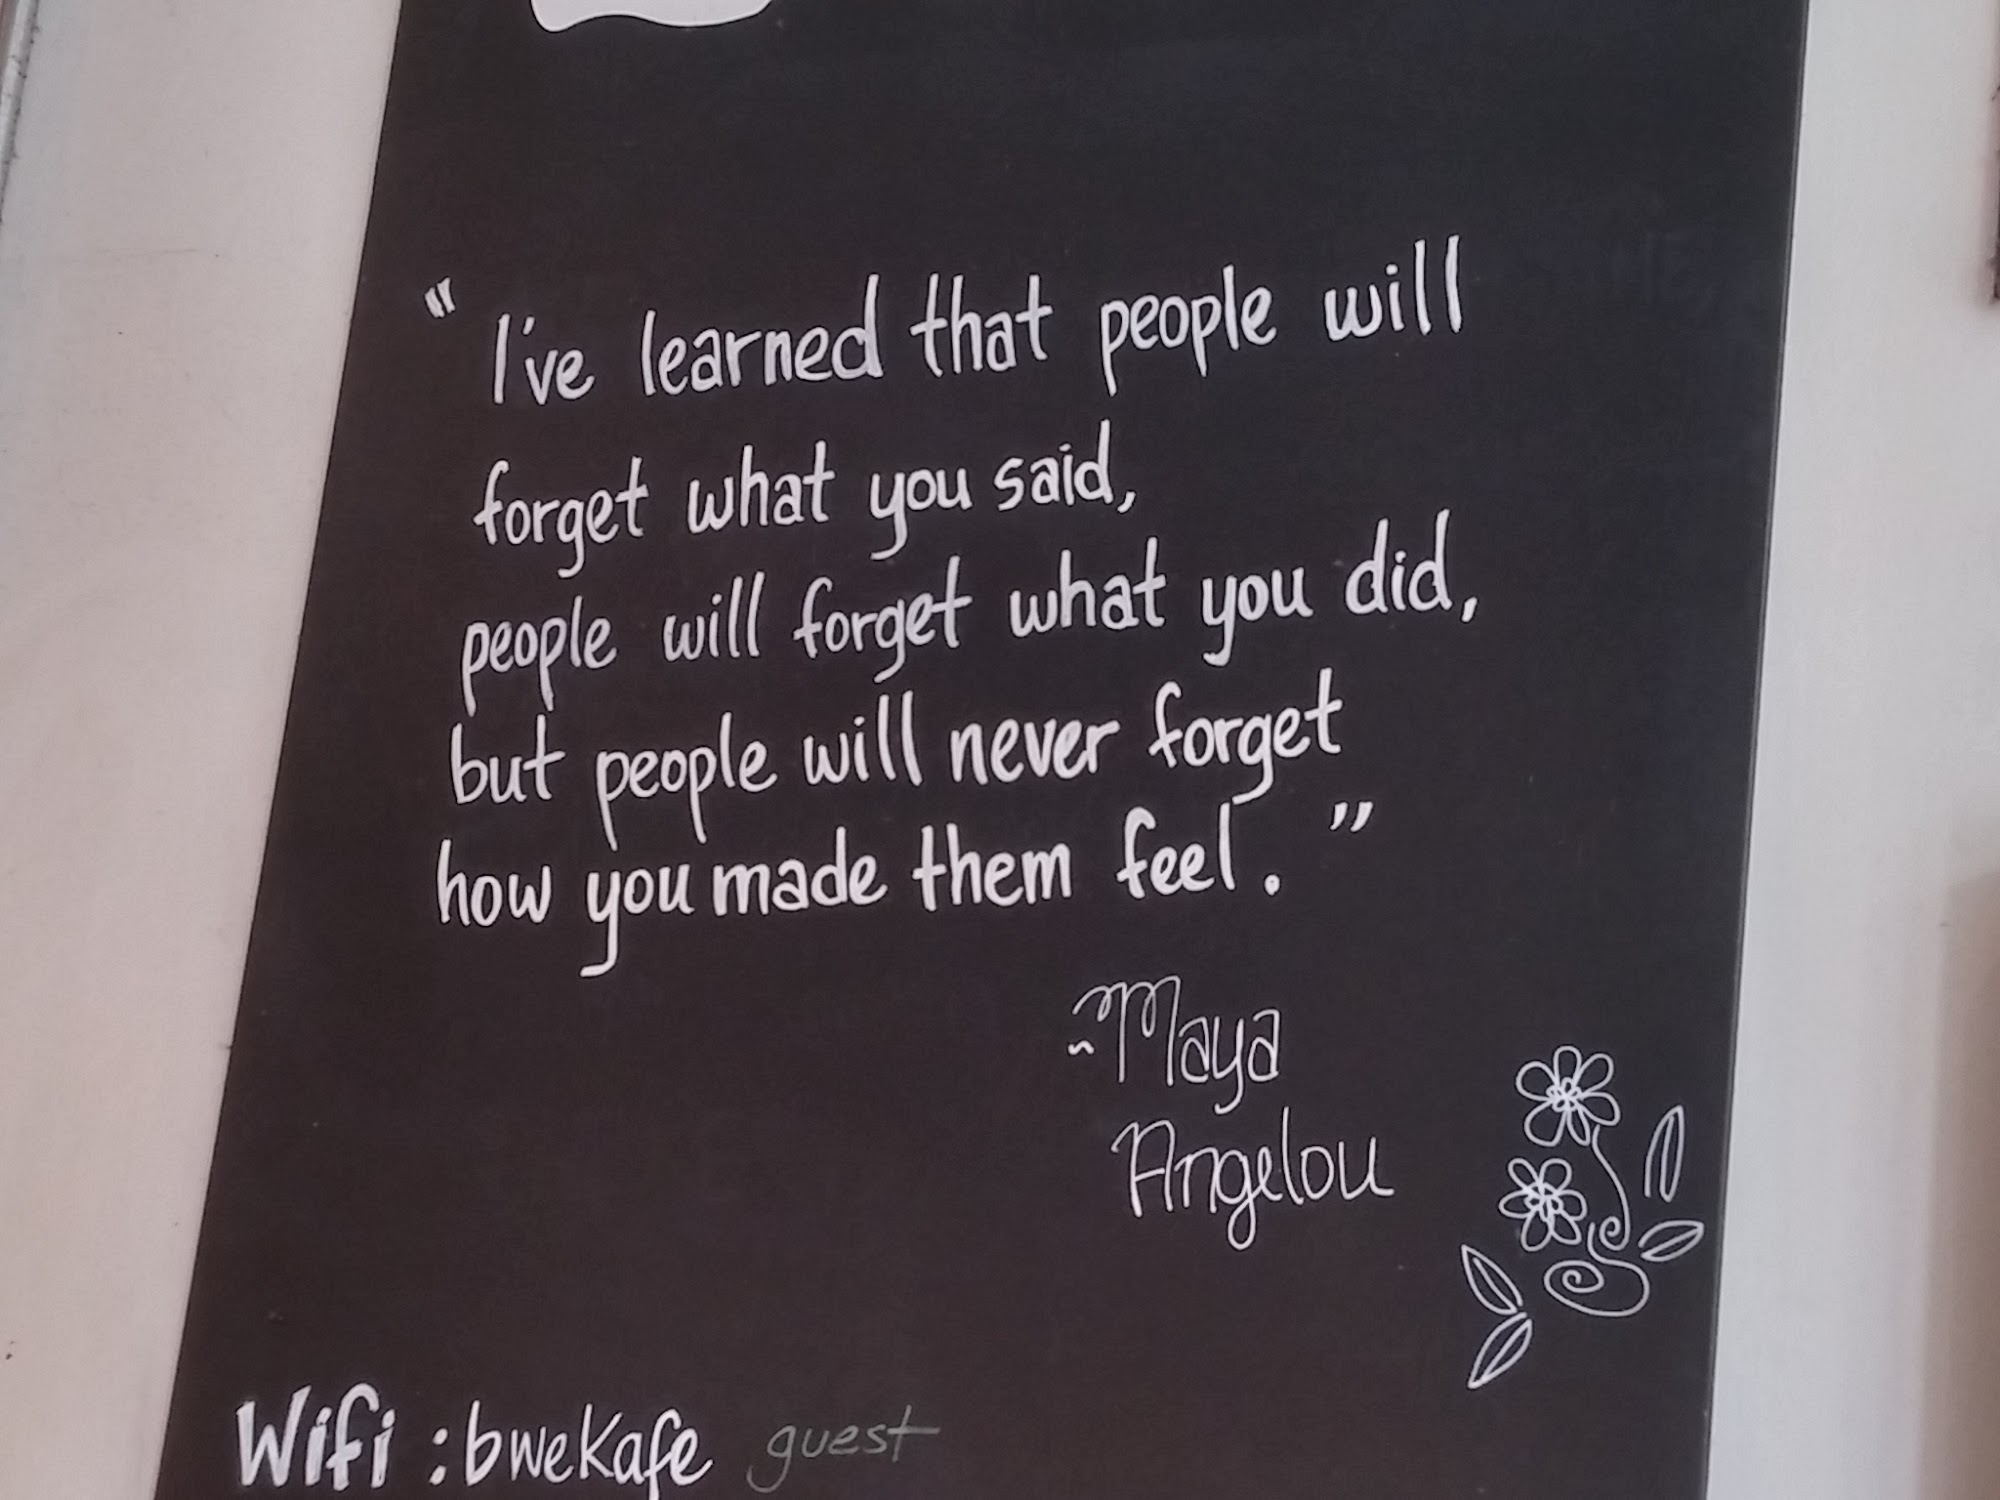 “I've learned that people will
forget what you said,
people will forget what you did,
but people will never forget
how you made them feel.”
~Maya
Angelou
Wifi : bwekafe guest